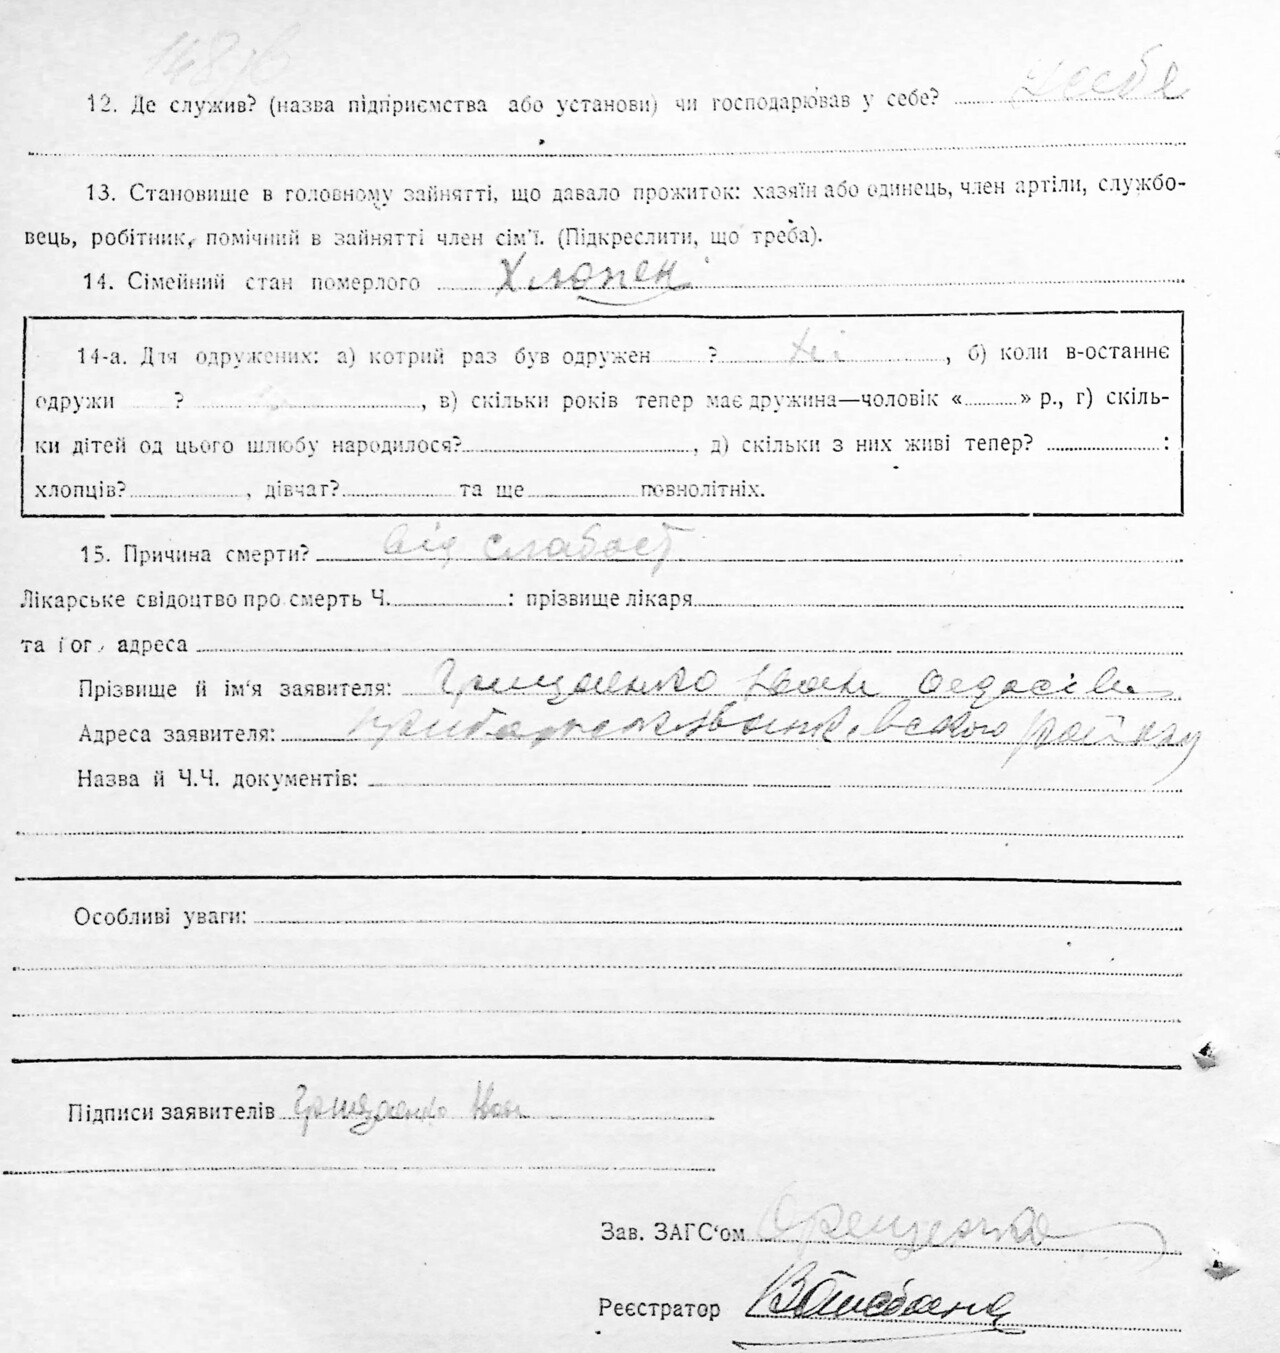 12. Де служив? (назва підприємства або установи) чи господарював у себе? у себе
13. Становище в головному зайнятті, що давало прожиток: хазяїн або одинець, член артіли, службо-
вець, робітник, помічний в зайнятті член сім'ї. (Підкреслити, що треба).
14. Сімейний стан померлого Хлопец
14-а. Для одружених: а) котрий раз був одружен ? , б) коли в-останнє
одружи ? , в) скільки років тепер має дружина—чоловік « » р., г) скіль-
ки дітей од цього шлюбу народилося? , д) скільки з них живі тепер? :
хлопців? , дівчат? та ще повнолітніх.
15. Причина смерти? від слабост
Лікарське свідоцтво про смерть Ч. : прізвище лікаря
та його адреса
Прізвище й ім'я заявителя: Грищенко Іван
Адреса заявителя: району
Назва й Ч.Ч. документів:
Особливі уваги:
Підписи заявителів Грищенко Іван
Зав. ЗАГС'ом
Реєстратор